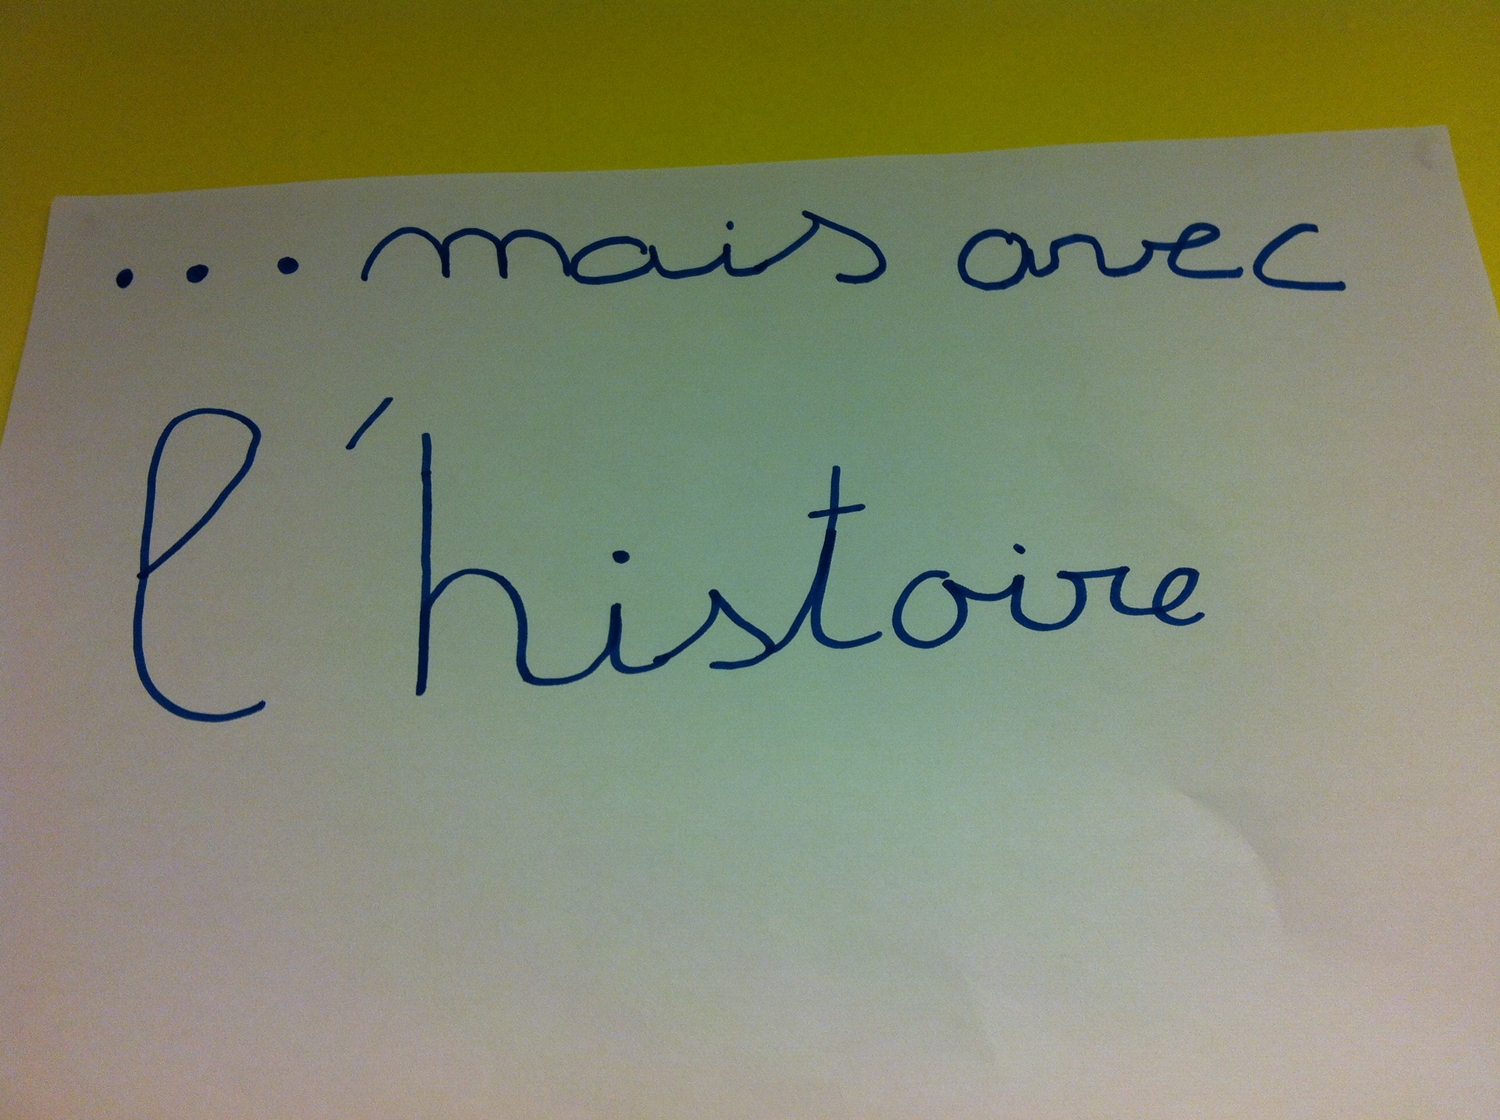 ... mais avec
l'histoire